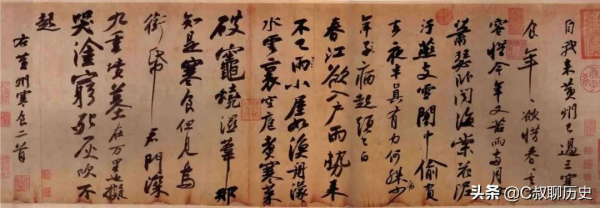 自我來黄州已過三寒
食年〻欲惜春〻去不
容惜今年又苦雨兩月秋
蕭瑟卧聞海棠花泥
汙燕支雪闇中偷負
去夜半真有力何殊少
年子病起頭已白
春江欲入户雨勢來
不已雨小屋如漁舟濛〻
水雲裏空庖煮寒菜
破竈燒濕葦那
知是寒食但見烏
銜帋君門深
九重墳墓在万里也擬
哭塗窮死灰吹不
起
右黄州寒食二首
头条 @C叔聊历史